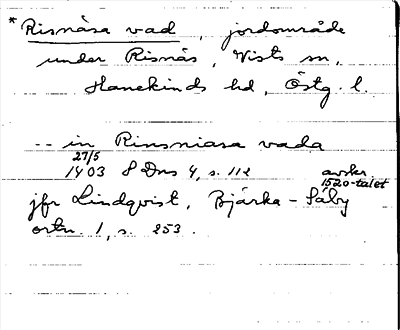 * Risnåsa vad, jordområde
under Risnäs, Vists sn,
Hanekinds hd, Östg. l.
-- in Rinsniasa vada
27/5
1403 SDns 4, s. 112 avskr.
1520-talet
jfr Lindqvist, Bjärka-Säby
ortn. 1, s. 253.